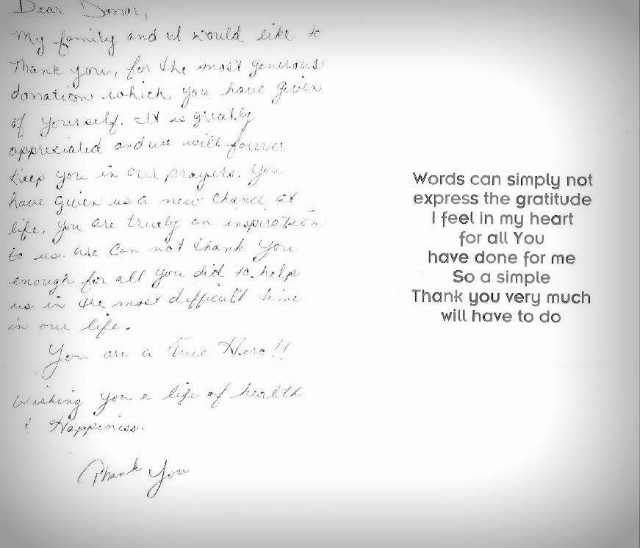 Dear Donor,
My family and I would like to
Thank you, for the most generous
donation which you have given
of yourself. It is greatly
appreciated and we will forever
keep you in our prayers. You
have given us a new chance at
life, you are truely an inspiration
to us. We can not thank you
enough for all you did to help
us in the most difficult time
in our life.
You are a True Hero!!
Wishing you a life of health
& Happiness.
Thank You
Words can simply not
express the gratitude
I feel in my heart
for all You
have done for me
So a simple
Thank you very much
will have to do